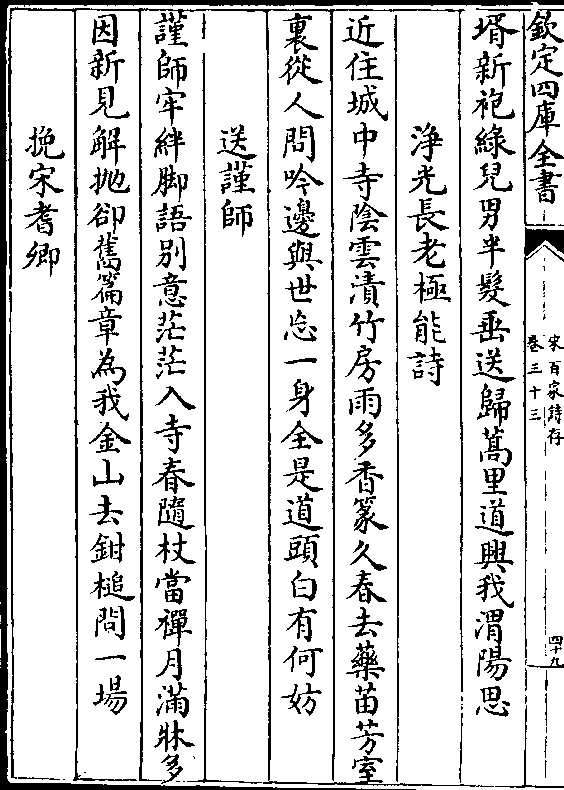 欽定四庫全書
宋百家詩存
卷三十三
四十九
壻新袍綠兒男半髮垂送歸蒿里道興我渭陽思
淨光長老極能詩
近住城中寺陰雲漬竹房雨多香篆久春去藥苗芳室
裏從人問吟邊與世忘一身全是道頭白有何妨
送謹師
謹師牢絆脚語別意茫茫入寺春隨杖當禪月滿牀多
因新見解抛卻舊篇章為我金山去鉗槌問一場
挽宋耆卿